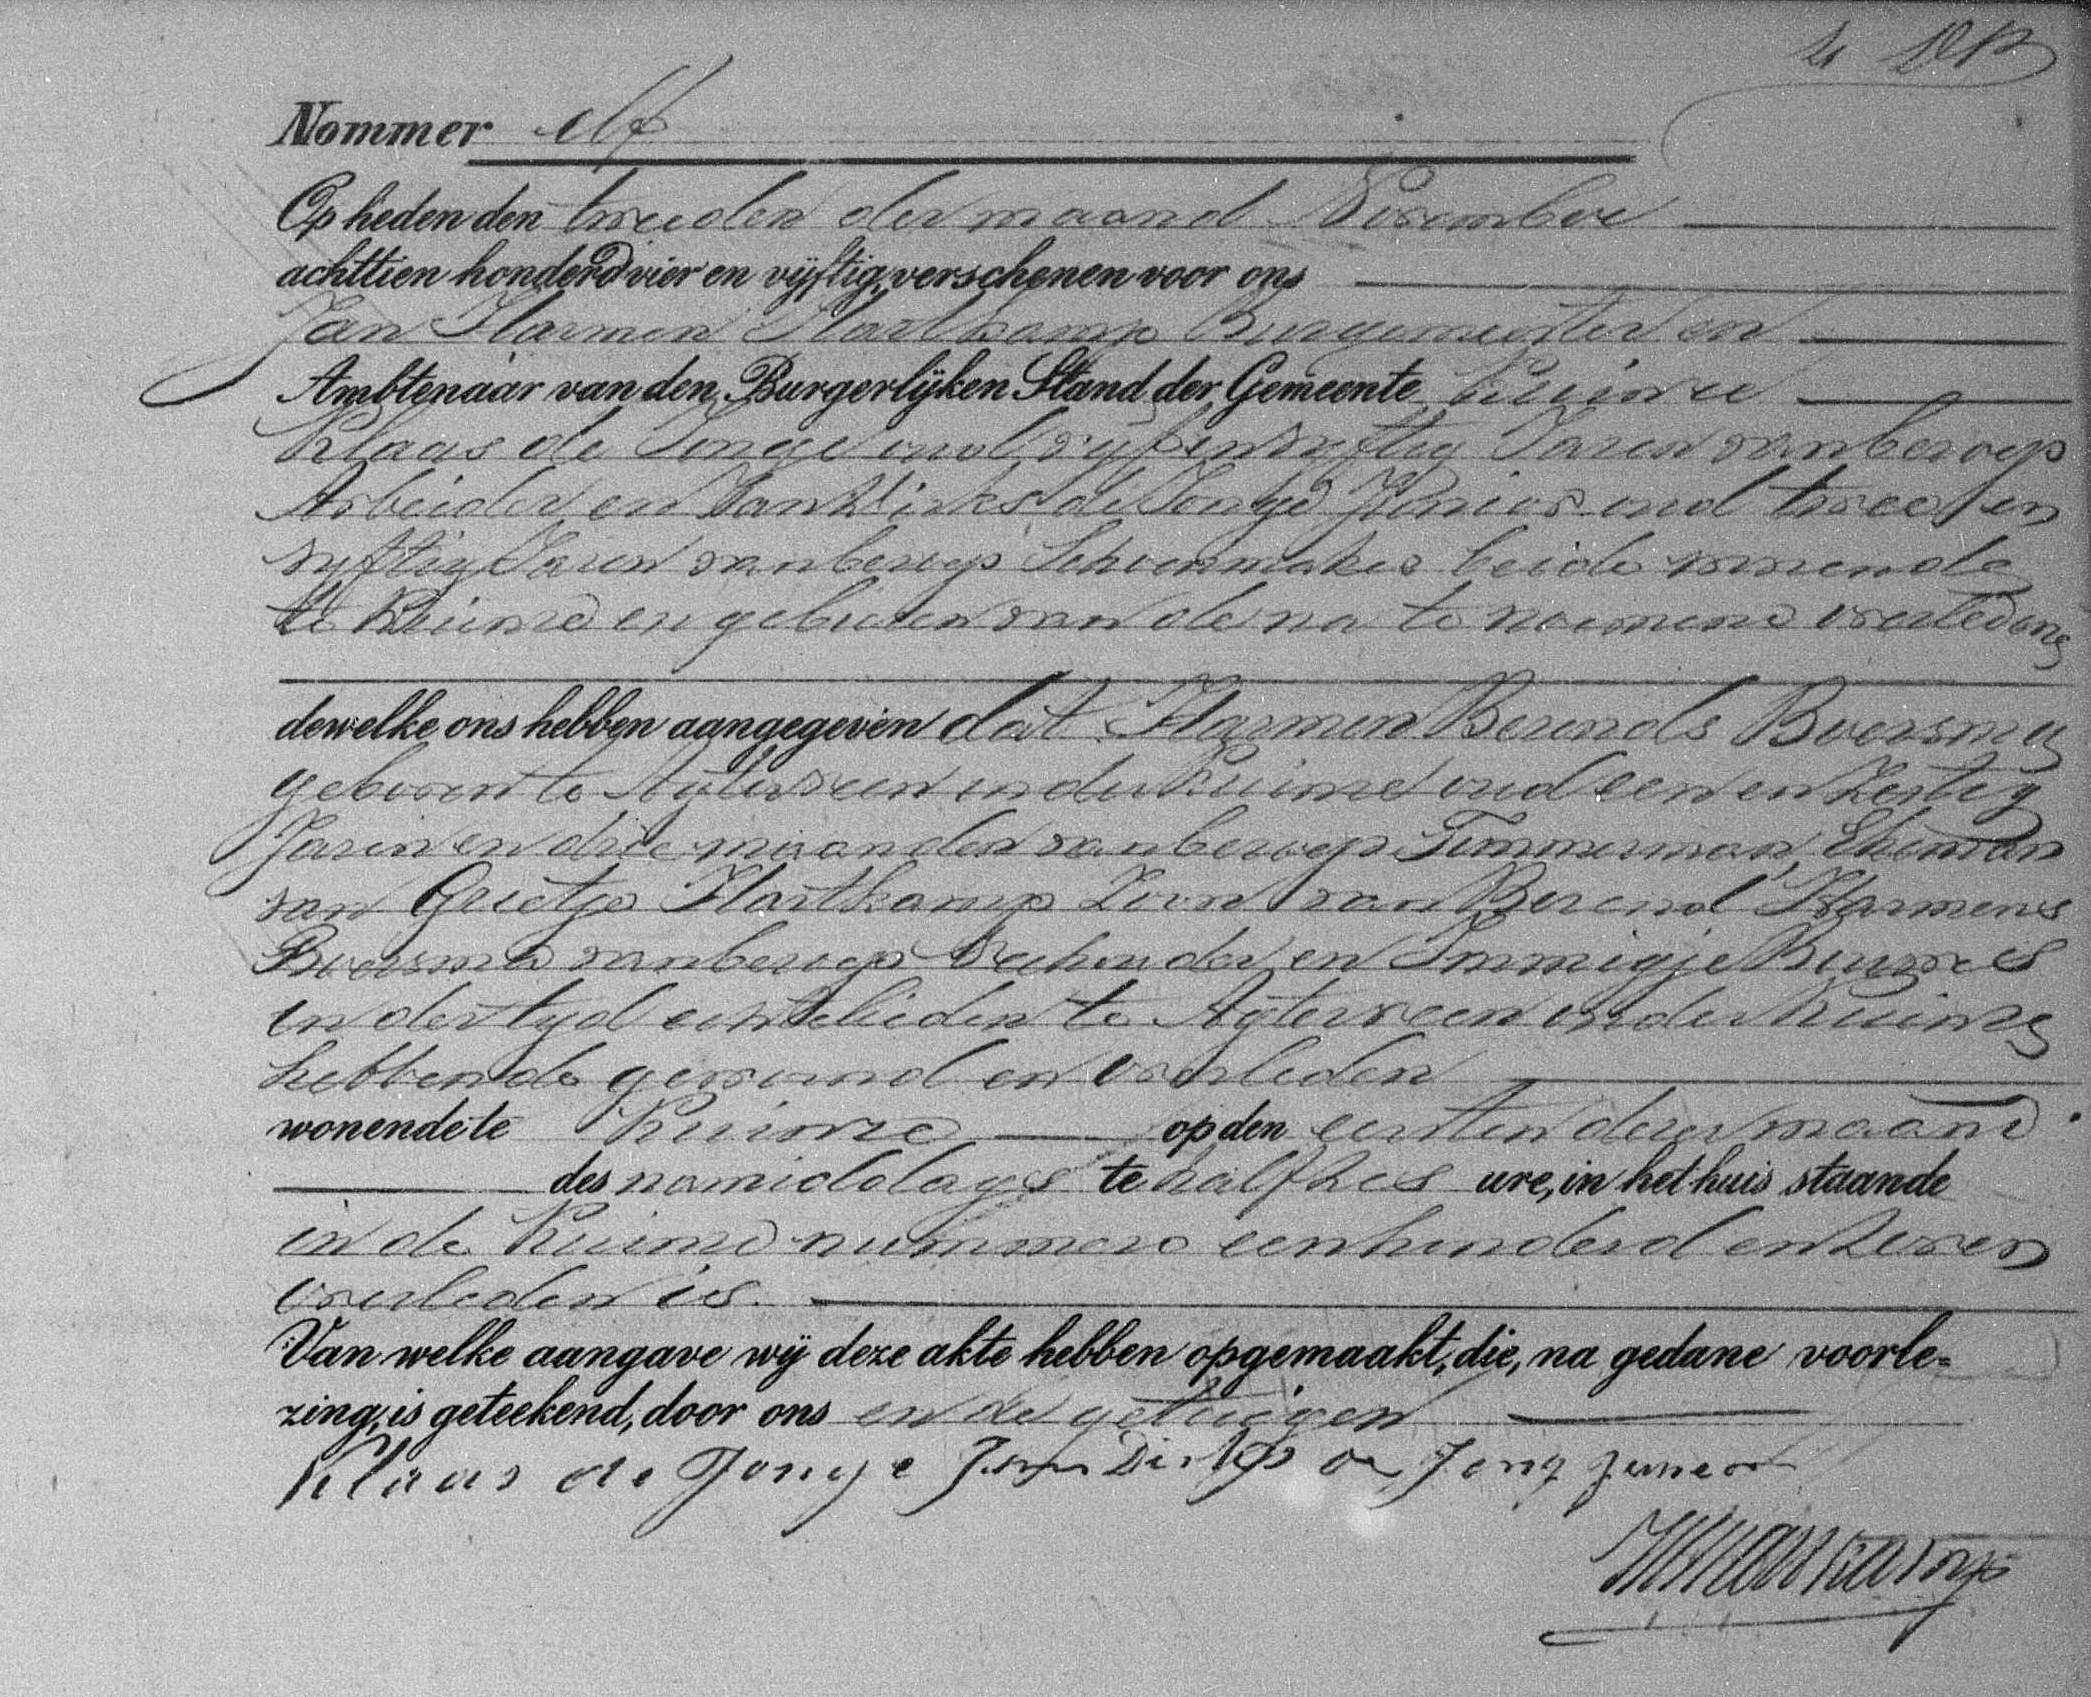 Nommer elf
Op heden den tweeden der maand November
achttien honderd vier en vijftig, verschenen voor ons
Jan Harmen Hartkamp Burgemeester en
Ambtenaar van den Burgerlijken Stand der Gemeente Kuinre
Klaas de Jonge oud vijf en vijftig Jaren van beroep
Arbeider en Jan Dirks de Jonge Junior oud twee en
vijftig Jaren van beroep Schoenmaker beide wonende
te Kuinre en geburen van de na te noemene overledene
dewelke ons hebben aangegeven dat Harmen Berends Boersma
geboren te Agterveen onder Kuinre oud een en zestig
Jaren en drie maanden van beroep Timmerman, Eheman
van Grietje Hartkamp Zoon van Berend Harmens
Boersma van beroep Veehouder en Immigje
in der tyd echtelieden te Agterveen onder Kuinre
hebbende gewoond en overleden
wonende te Kuinre op den eersten dezer maand
des namiddags te half zes ure, in het huis staande
in de Kuinre nummero een honderd en zeven
overleden is.
Van welke aangave wij deze akte hebben opgemaakt, die, na gedane voorle=
zing, is geteekend, door ons en de getuigen
Klaas de Jonge Jan Dirks de Jong Junior
JHHartkamp